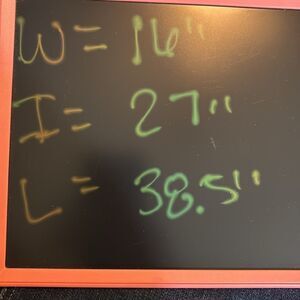 W = 16"
I = 27"
L = 38.5"